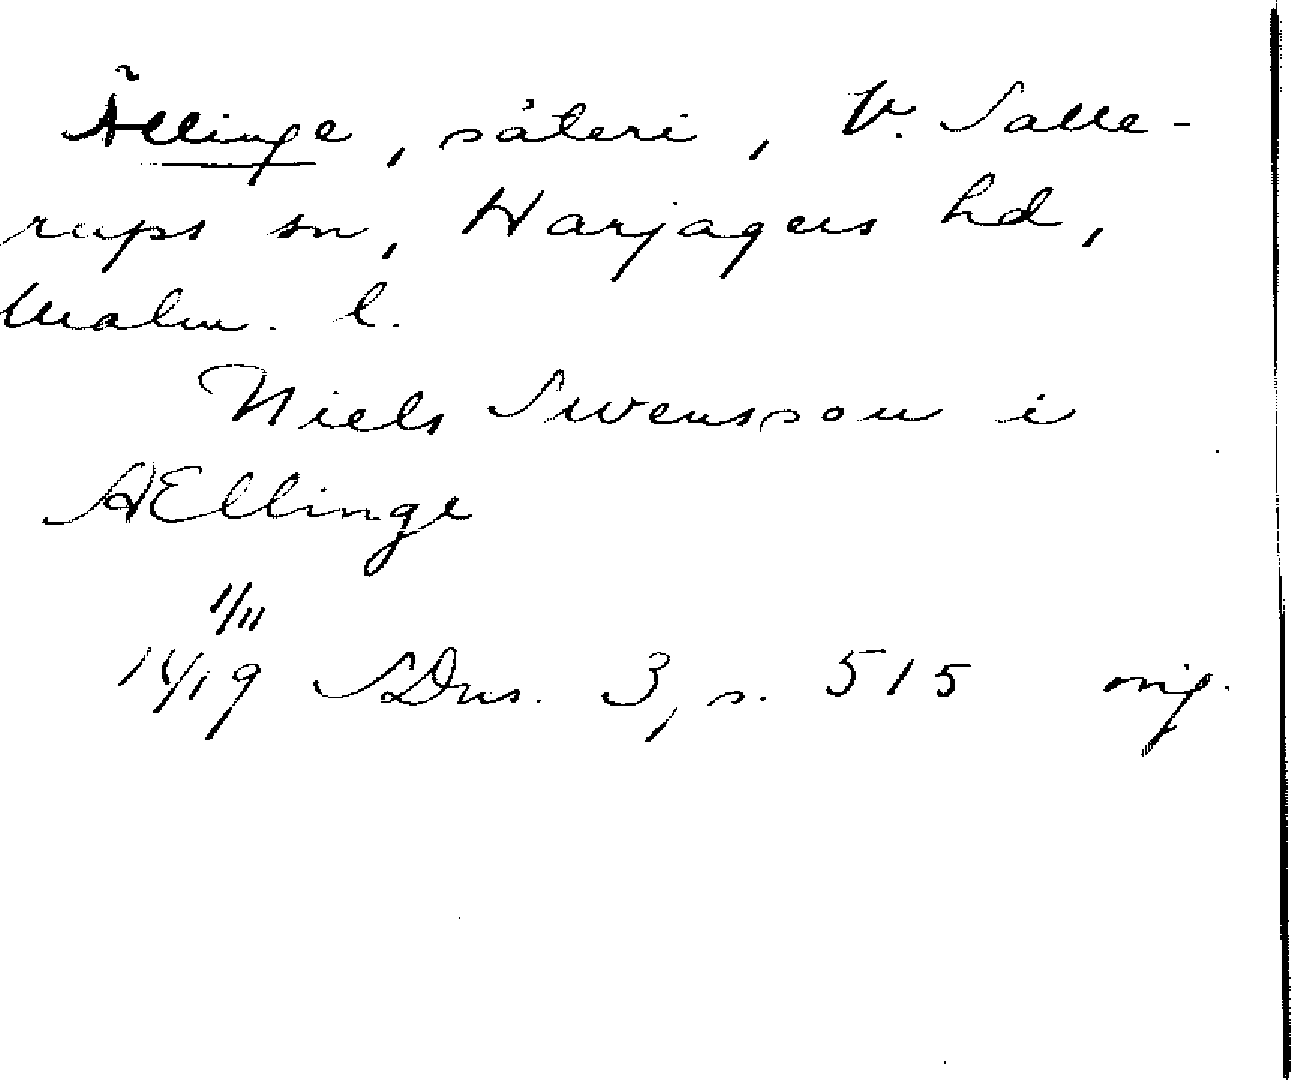 Ällinge, säteri, V. Salle-
rups sn, Harjagers hd,
Malm. l.
Niels Swensson i
AEllinge
1/11
14/19 SDns. 3, s. 515 orig.